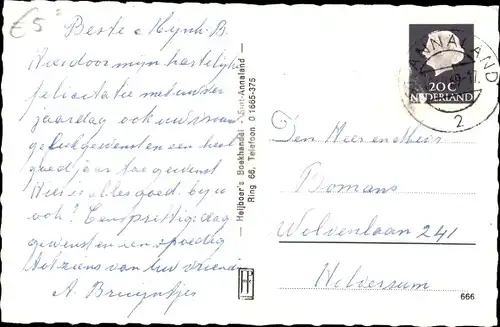 €5=
Beste Mijnh. B.
Hierdoor mijn hartelijke
felicitatie met uw
jaardag ook uw
geluk gewenst en een heel
goed jaar toe gewenst
Hier is alles goed bij u
ook? Een prettige dag
gewenst en een spoedig
tot ziens van uw vriend
A. Bruijntjes
Heijboer's Boekhandel - Sint-Annaland
Ring 66, Telefoon 0 1665-375
ANNALAND
2
20 C
NEDERLAND
Den Heer en Mevr
Bomans
Wolvenlaan 241
Hilversum
666